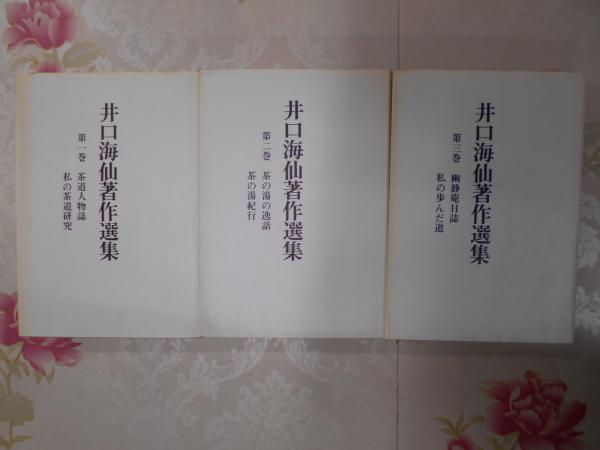 井口海仙著作選集
第一巻 茶道人物誌
私の茶道研究
井口海仙著作選集
第二巻 茶の湯の逸話
茶の湯紀行
井口海仙著作選集
第三巻 幽静庵日誌
私の歩んだ道